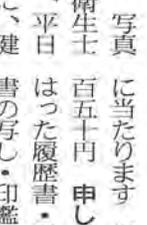 写真に当たります
衛生士 百五十円 申し
、平日 はった履歴書・
に、健 書の写し・印鑑